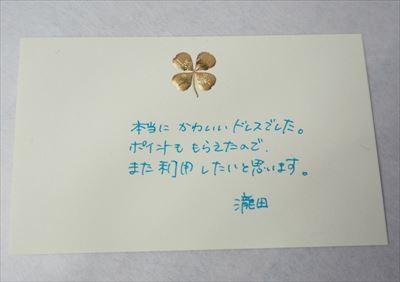 本当に かわいい ドレスでした。
ポイントも もらえたので、
また 利用 したいと思います。
瀧田